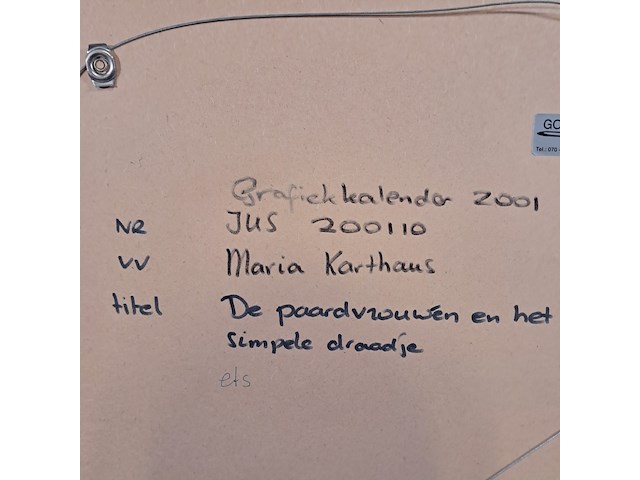 GO
Tel.: 070
Grafiekkalender 2001
NR JUS 200110
VV Maria Karthaus
titel De paardvrouwen en het
simpele draadje
ets